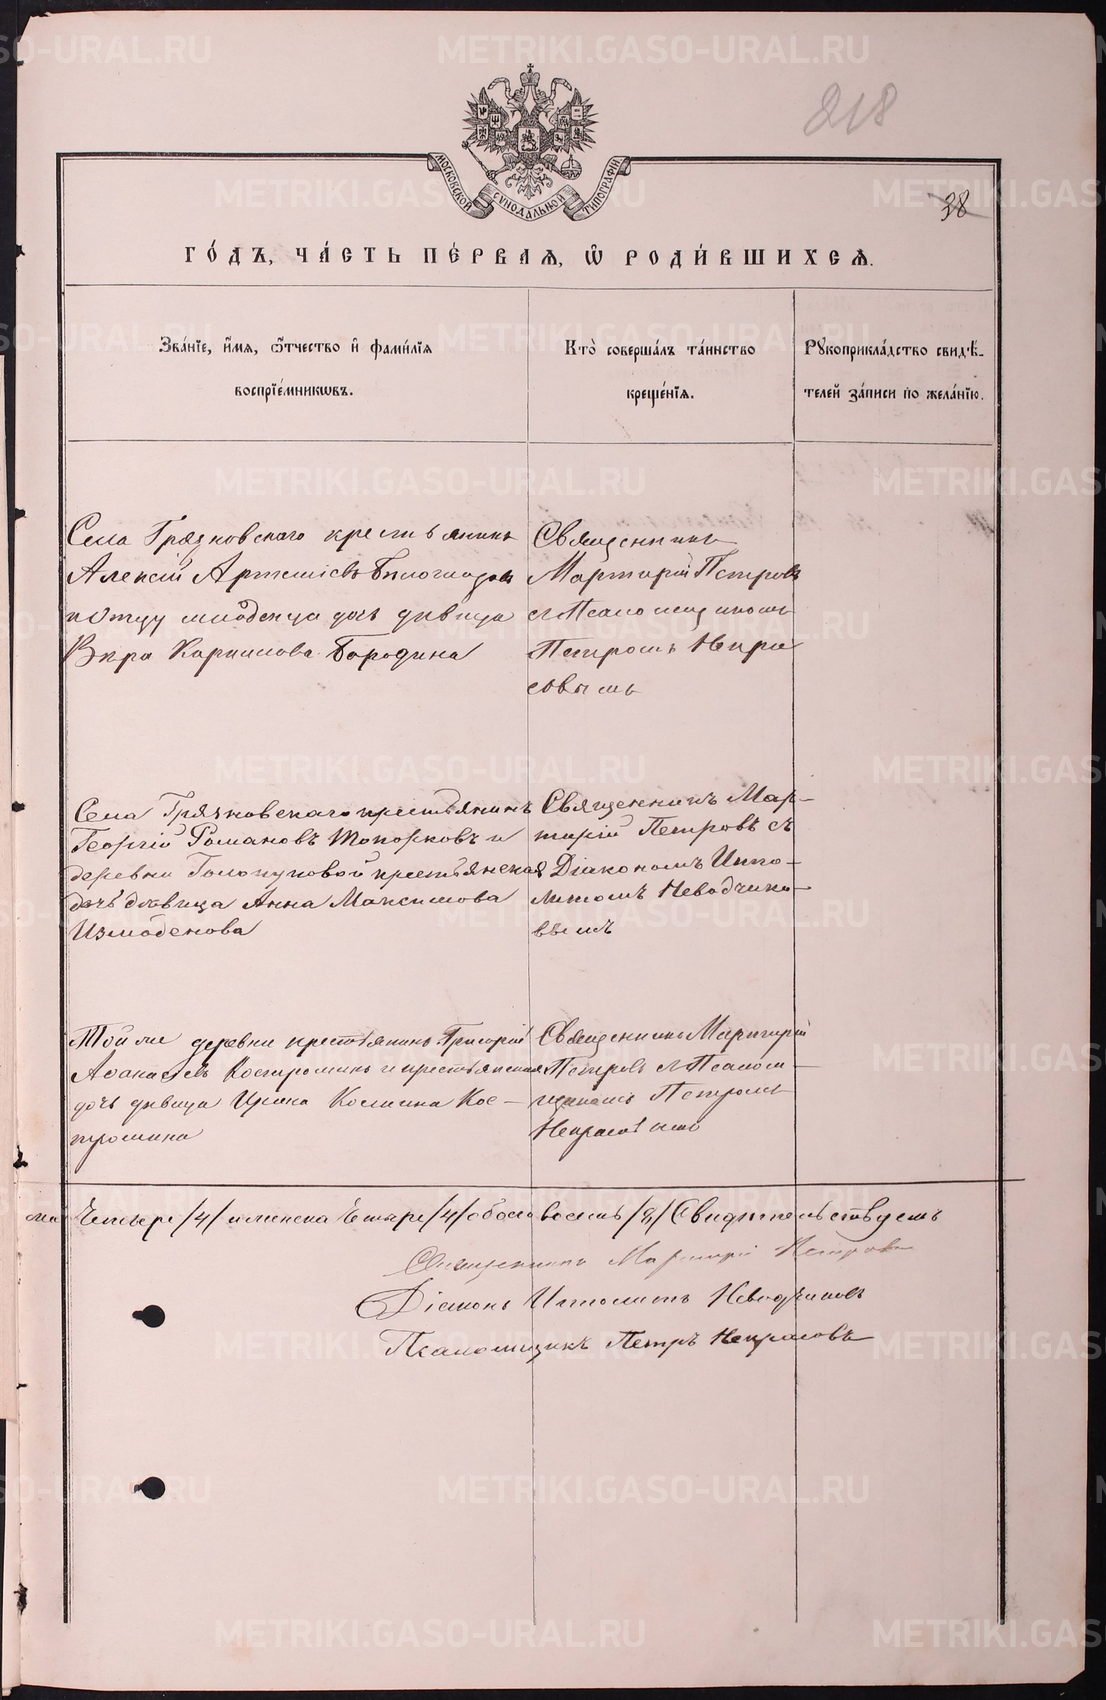 218
МОСКОВСКОЙ СѴНОДАЛЬНОЙ ТИПОГРАФІИ
38
ГО́ДЪ, ЧА́СТЬ ПЕ́РВАЯ, Ѡ҆ РОДИ́ВШИХСЯ.
Зва́нїе, и҆́мя, ѻ҆́тчество и҆ фами́лїя
воспрїе́мникѡвъ.
Кто̀ соверша́лъ та́инство
креще́нїя.
Рꙋкоприкла́дство свидѣ́-
телей за́писи по жела́нїю.
Села Грязновскаго крестьянинъ
Алексій Артеміевъ
и отцу младенца дочь дѣвица
Вѣра Карпилова Бородина
Священникъ
Мартирій Петровъ
съ Псаломщикомъ
Петромъ Некра
совымъ
Села Грязновскаго крестьянинъ
Георгій Романовъ Топорковъ и
деревни Голопуповой крестьянская
дочь дѣвица Анна Максимова
Измоденова
Священникъ Мар-
тирій Петровъ съ
Діакономъ Иппо-
литомъ Неводчико-
вымъ
Той же деревни крестьянинъ Григорій
Аѳанасьевъ Костроминъ и крестьянская
дочь дѣвица Ирина Козмина Кос-
тромина
Священникъ Мартирій
Петровъ съ Псаломщ-
щикомъ Петромъ
Некрасовымъ
четыре /4/ женска четыре /4/ обоего восемь /8/ Свидѣтельствуемъ
Священникъ Мартирій Петровъ
Діаконъ Ипполитъ Неводчиковъ
Псаломщикъ Петръ Некрасовъ
METRIKI.GASO-URAL.RU